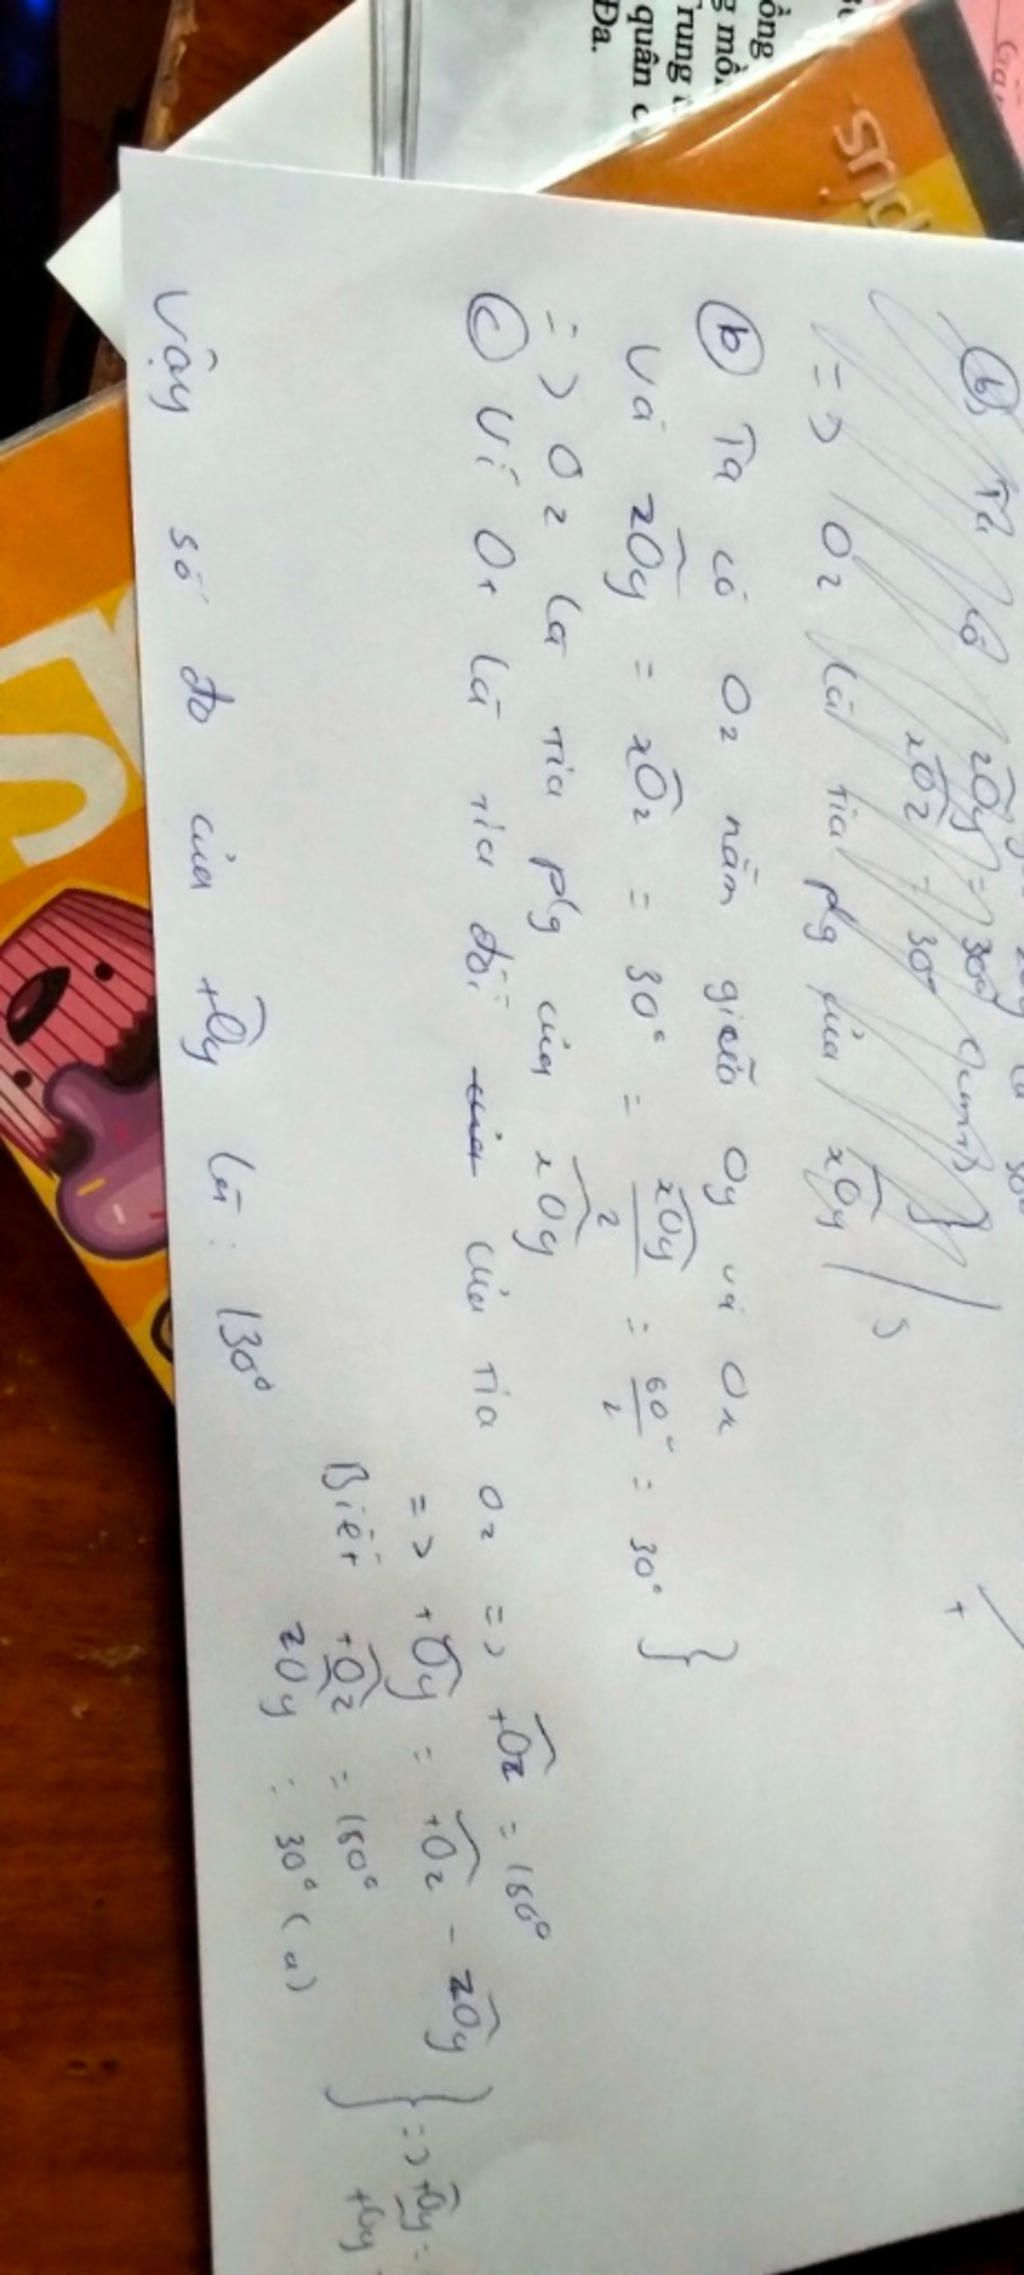 ồng
quân
Đa.
snd
(b) Ta có zOy = 30°
xOz = 30°
=> Oz là tia p/g của xOy
(b) Ta có Oz nằm giữa Oy và Ox
và zOy = xOz = 30° = xOy/2 = 60°/2 = 30° }
=> Oz là tia p/g của xOy
(c) Vì Ot là tia đối của tia Oz => tOz = 180°
=> tOy = tOz - zOy
Biết tOz = 180°
zOy = 30° (a)
} => tOy =
tOy
Vậy số đo của tOy là: 130°